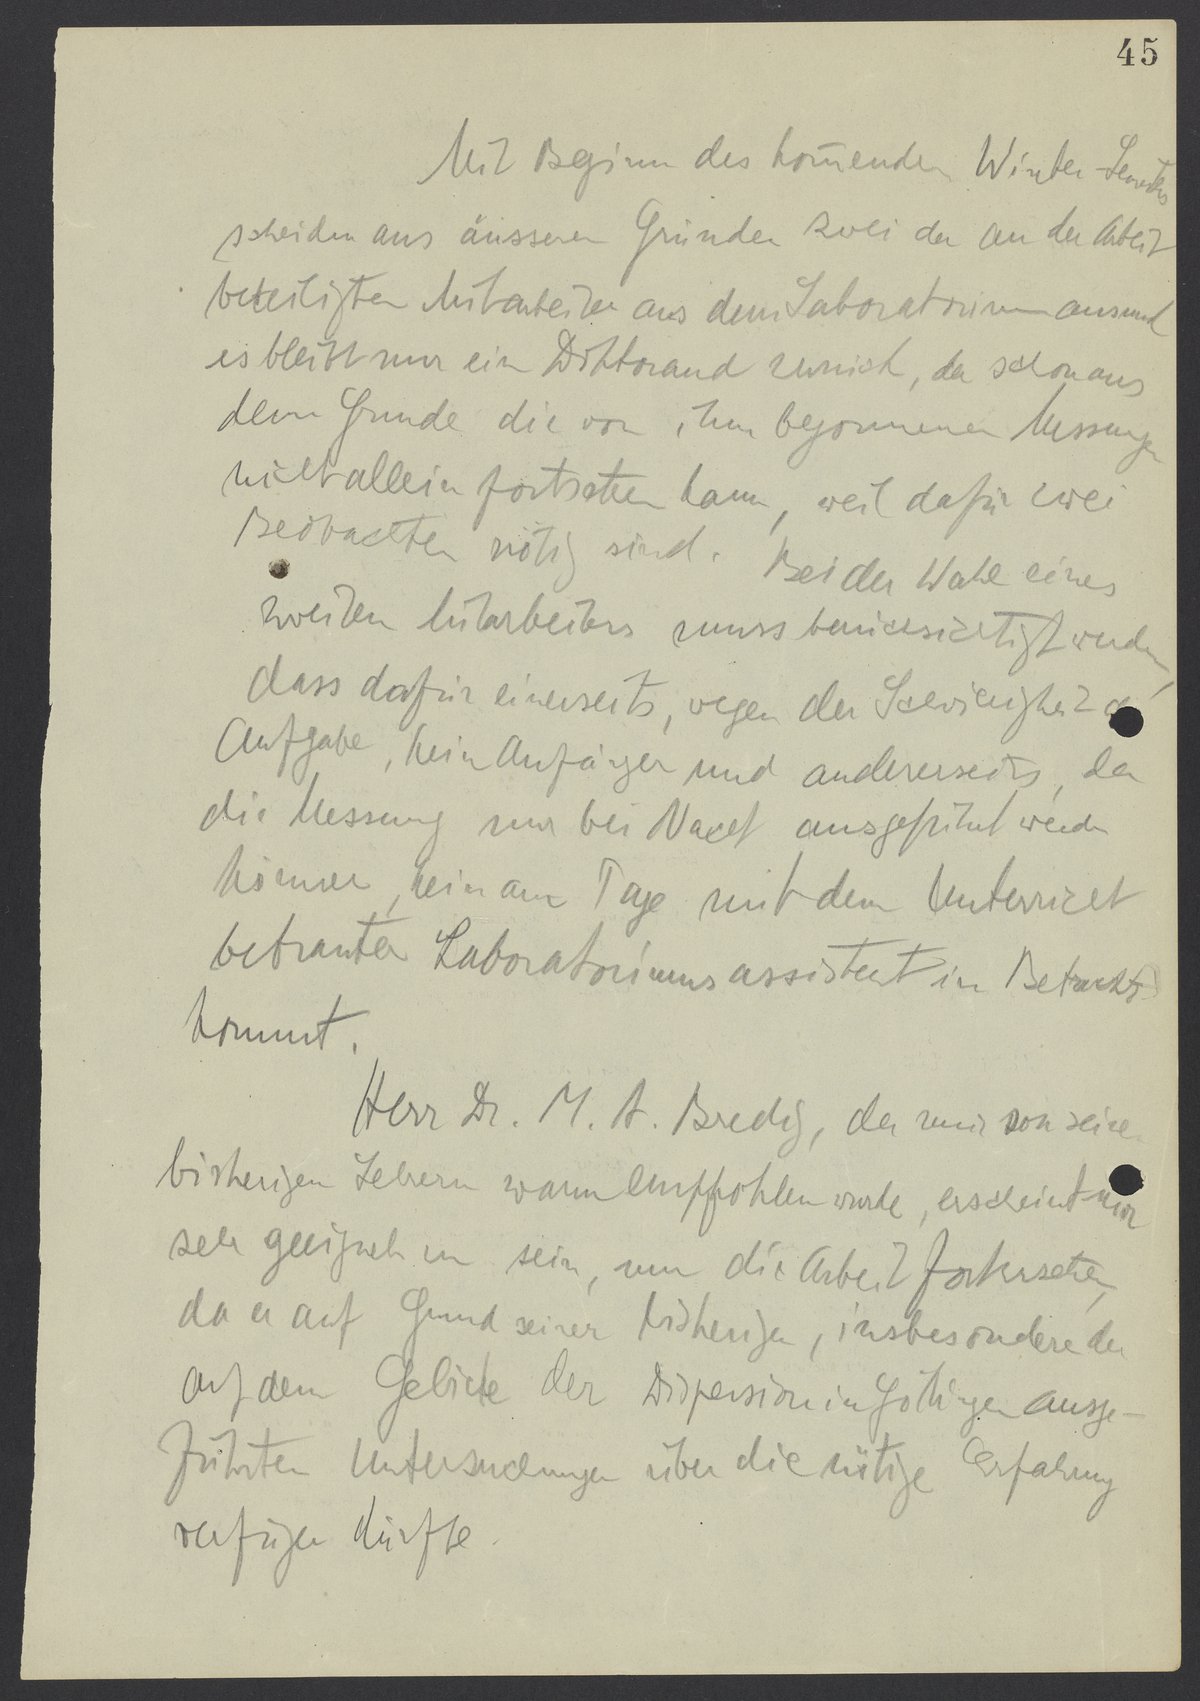 45
Mit Beginn des kom̅enden Winter-Semesters
scheiden aus äusseren Gründen zwei der an der Arbeit
beteiligten Mitarbeiter aus dem Laboratorium aus und
es bleibt nur ein Doktorand zurück, der schon aus
dem Grunde die von ihm begonnenen Messungen
nicht allein fortsetzen kann, weil dafür zwei
Beobachter nötig sind. Bei der Wahl eines
zweiten Mitarbeiters muss berücksichtigt werden,
dass dafür einerseits, wegen der Schwierigkeit der
Aufgabe, kein Anfänger und andererseits, da
die Messung nur bei Nacht ausgeführt werden
können, kein am Tage mit dem Unterricht
betrauter Laboratoriumsassistent in Betracht
kommt.
Herr Dr. M. A. Bredig, der mir von seinen
bisherigen Lehrern warm empfohlen wurde, erscheint mir
sehr geeignet zu sein, um die Arbeit fortzusetzen,
da er auf Grund seiner bisherigen, insbesondere der
auf dem Gebiete der Dispersion in Göttingen ausge-
führten Untersuchungen über die nötige Erfahrung
verfügen dürfte.